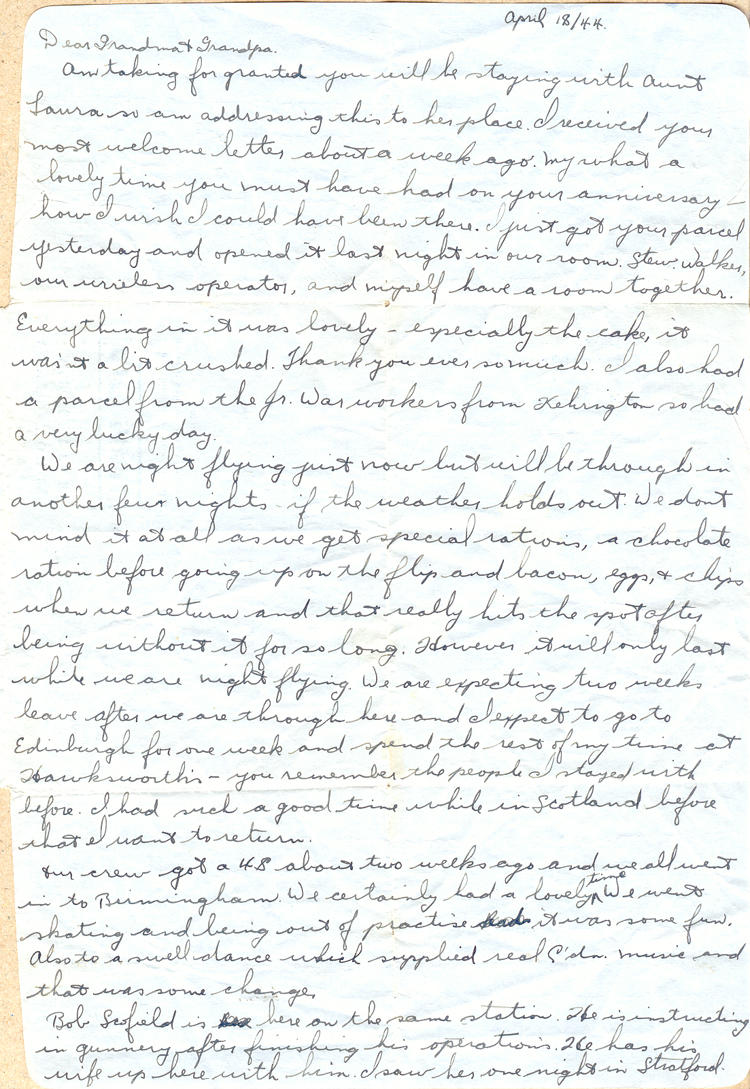 April 18/44.
Dear Grandma & Grandpa.
Am taking for granted you will be staying with Aunt
Laura so am addressing this to her place. I received your
most welcome letter about a week ago. My what a
lovely time you must have had on your anniversary –
how I wish I could have been there. I just got your parcel
yesterday and opened it last night in our room. Stew. Walker,
our wireless operator, and myself have a room together.
Everything in it was lovely – especially the cake, it
wasn't a bit crushed. Thank you ever so much. I also had
a parcel from the Jr. War workers from so had
a very lucky day.
We are night flying just now but will be through in
another few nights if the weather holds out. We dont
mind it at all as we get special rations, a chocolate
ration before going up on the flip and bacon, eggs, & chips
when we return and that really hits the spot after
being without it for so long. However it will only last
while we are night flying. We are expecting two weeks
leave after we are through here and I expect to go to
Edinburgh for one week and spend the rest of my time at
Hawksworth's – you remember the people I stayed with
before. I had such a good time while in Scotland before
that I want to return.
Our crew got a 48 about two weeks ago and we all went
in to Birmingham. We certainly had a lovely time We went
skating and being out of practise it was some fun.
Also to a swell dance which supplied real C'dn. music and
that was some change.
Bob Scofield is here on the same station. He is instructing
in gunnery after finishing his operations. He has his
wife up here with him. I saw her one night in Stratford.